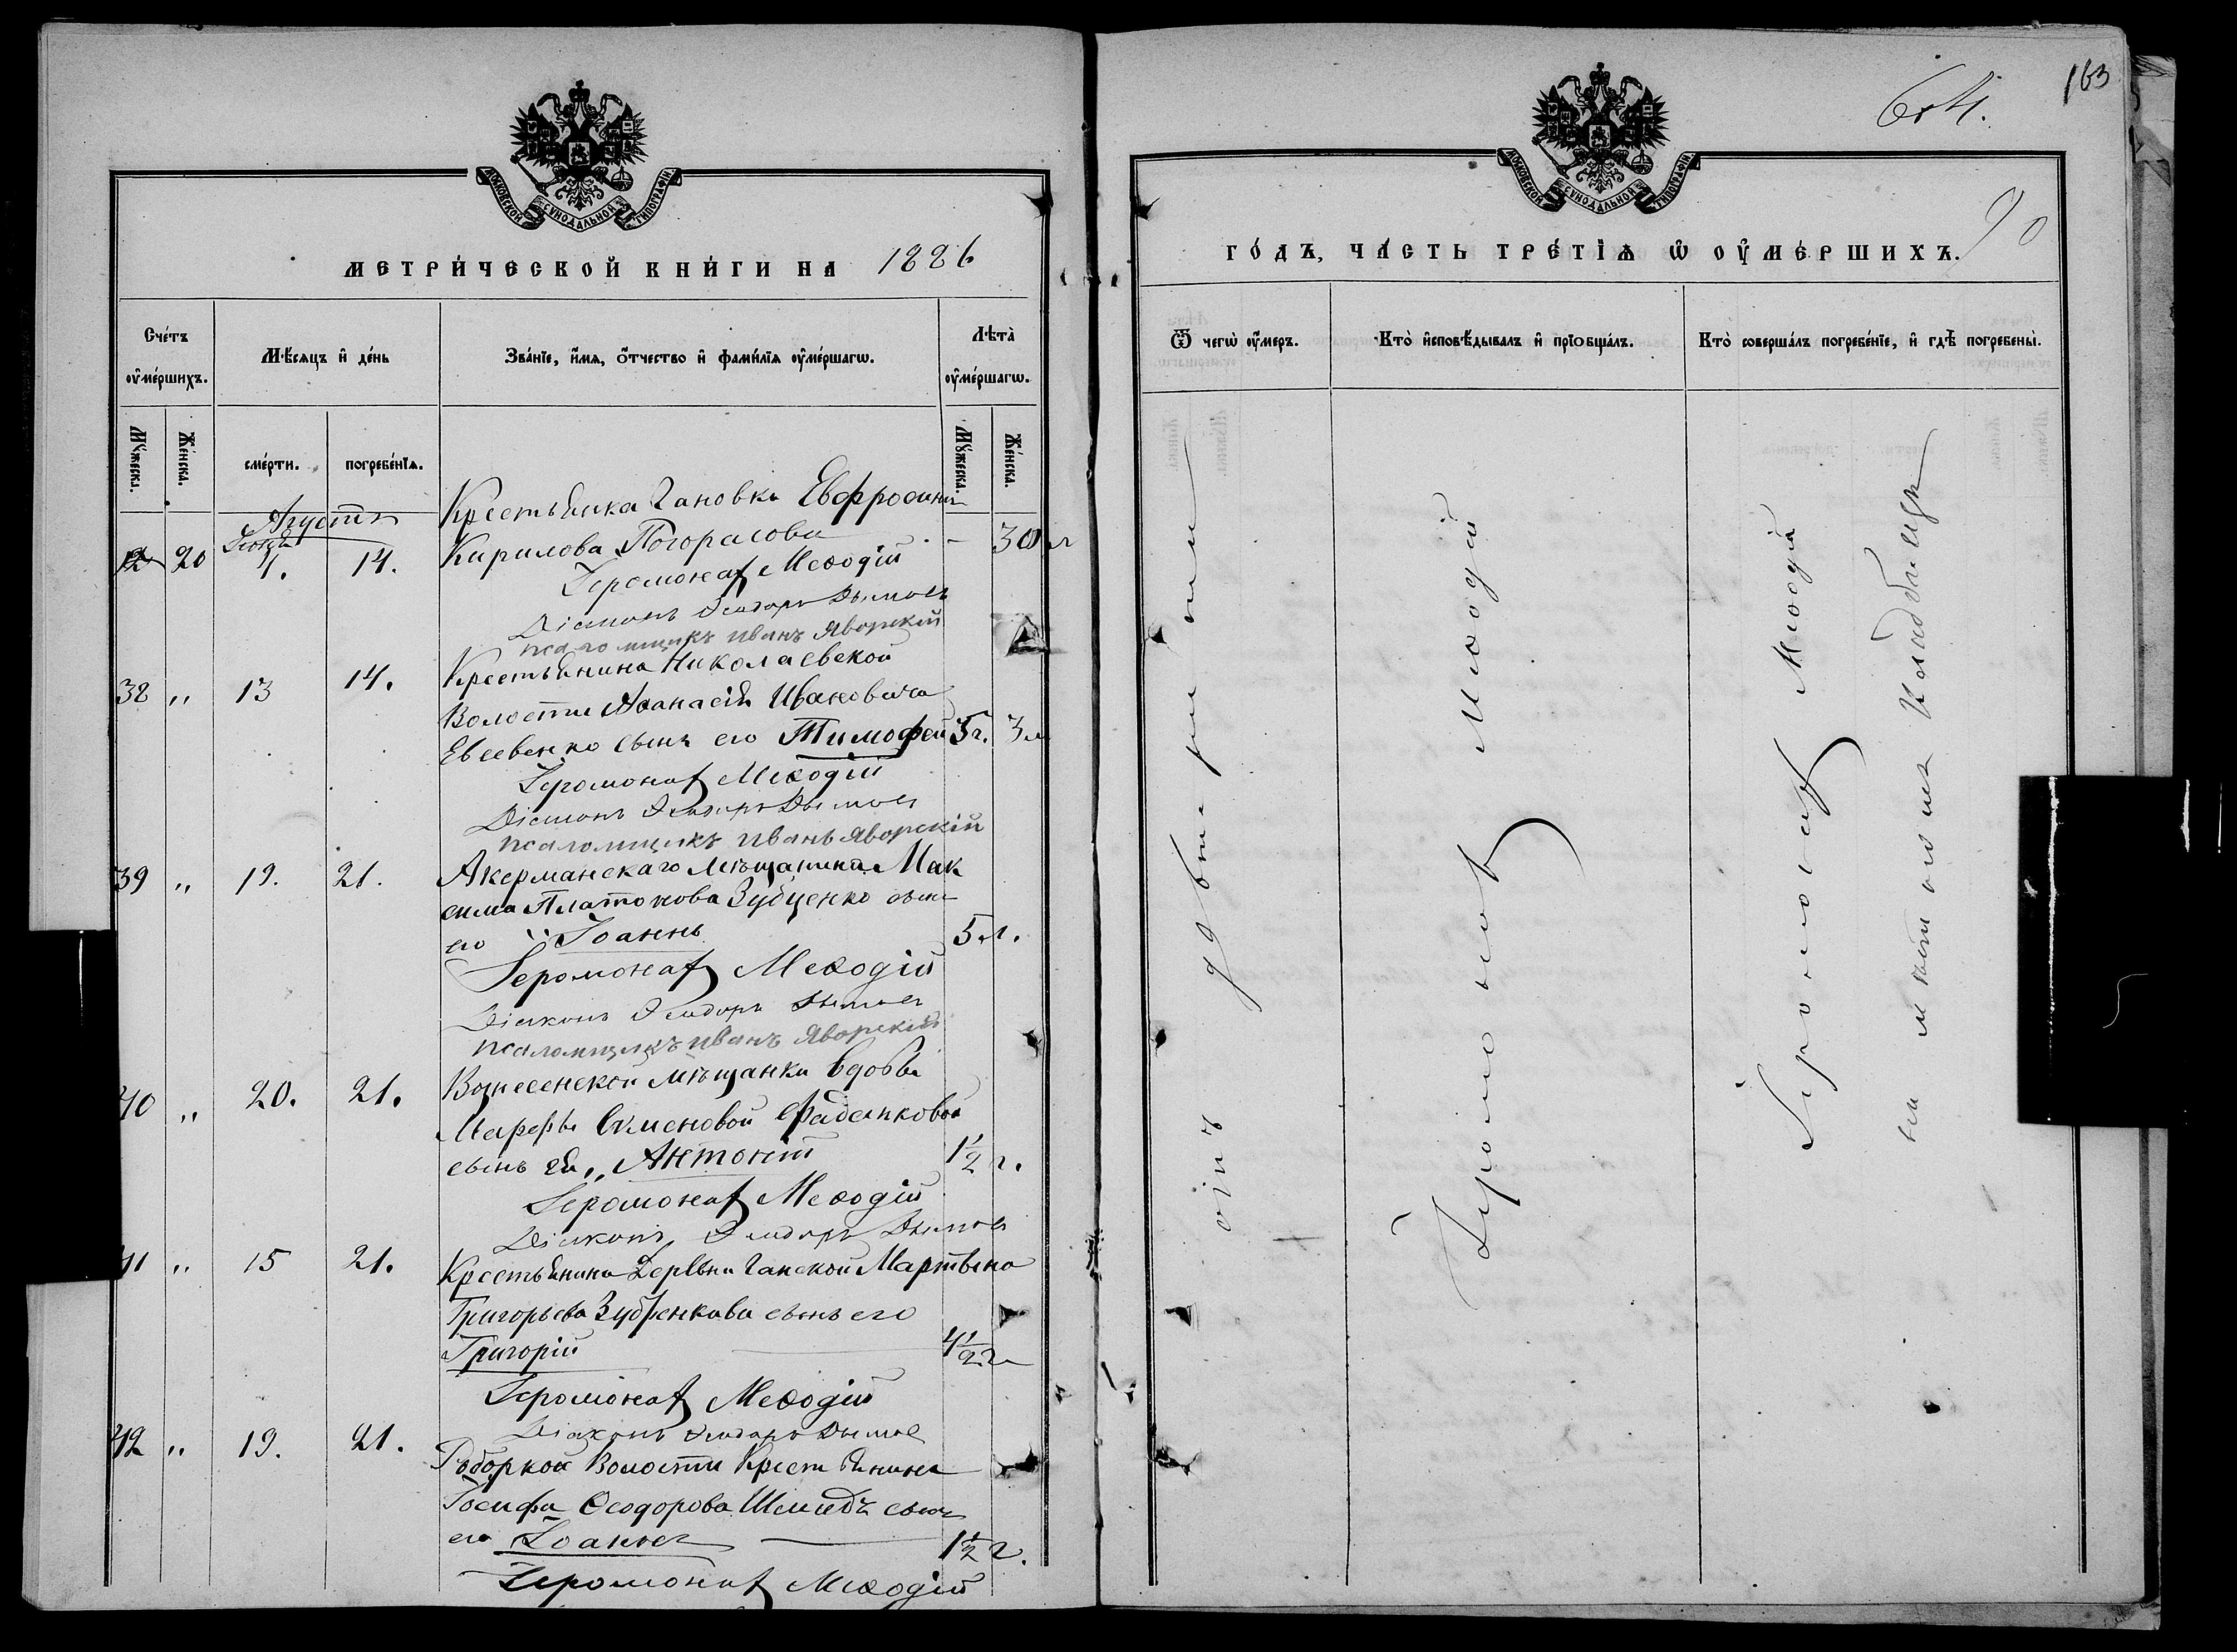 МОСКОВСКОЙ СѴНОДАЛЬНОЙ ТИПОГРАФІИ
МЕТРИ́ЧЕСКОЙ КНИ́ГИ НА 1886
Сче́тъ оу҆ме́ршихъ.
Мѣ́сяцъ и҆ де́нь
Зва́нїе, и҆́мѧ, ѻ҆́тчество и҆ фами́лїѧ оу҆ме́ршагѡ.
Лѣ́та оу҆ме́ршагѡ.
Мꙋ́жеска.
Же́нска.
сме́рти.
погребе́нїѧ.
Мꙋ́жеска.
Же́нска.
Августъ
Крестьянка Гановки Евфросинія
20 14. Кирилова Погорасова - 30 л
Іеромонах Меѳодій
Діаконъ Ѳеодоръ Дымовъ
псаломщикъ Иванъ Яворскій
38 " 13 14. Крестьянина Николаевской
Волости Аѳанасія Ивановича
Евсевенко сынъ его Тимофей 5 г. 3 м
Іеромонах Меѳодій
Діаконъ Ѳеодоръ Дымовъ
псаломщикъ Иванъ Яворскій
39 " 19. 21. Акерманскаго Мѣщанина Мак
сима Платонова Зубценко сынъ
его "Іоаннъ 5 л.
Іеромонах Меѳодій
Діаконъ Ѳеодоръ Дымовъ
псаломщикъ Иванъ Яворскій
40 " 20. 21. Вознесенской мѣщанки вдовы
Марфы Семеновой
сынъ ея „Антоній 1½ г.
Іеромонах Меѳодій
Діаконъ Ѳеодоръ Дымовъ
41 " 15 21. Крестьянина Деревни Ганской Мартвина
Григорьева сынъ его
Григорій 4½ г
Іеромонах Меѳодій
Діаконъ Ѳеодоръ Дымовъ
42 " 19. 21. Волости Крестьянина
Іосифа Ѳеодорова Шмидъ сынъ
его Іоаннъ 1½ г.
Іеромонах Меѳодій
163
90
МОСКОВСКОЙ СѴНОДАЛЬНОЙ ТИПОГРАФІИ
ГО́ДЪ, ЧА́СТЬ ТРЕ́ТІѦ Ѽ ОУ҆МЕ́РШИХЪ.
Ѿ чегѡ̀ оу҆́меръ.
Кто̀ и҆сповѣ́дывалъ и҆ прїобща́лъ.
Кто̀ соверша́лъ погребе́нїе, и҆ гдѣ̀ погребены̀.
отъ дифтерита
Іеромонах Меѳодій
Іеромонах Меѳодій
на мѣстномъ кладбищѣ